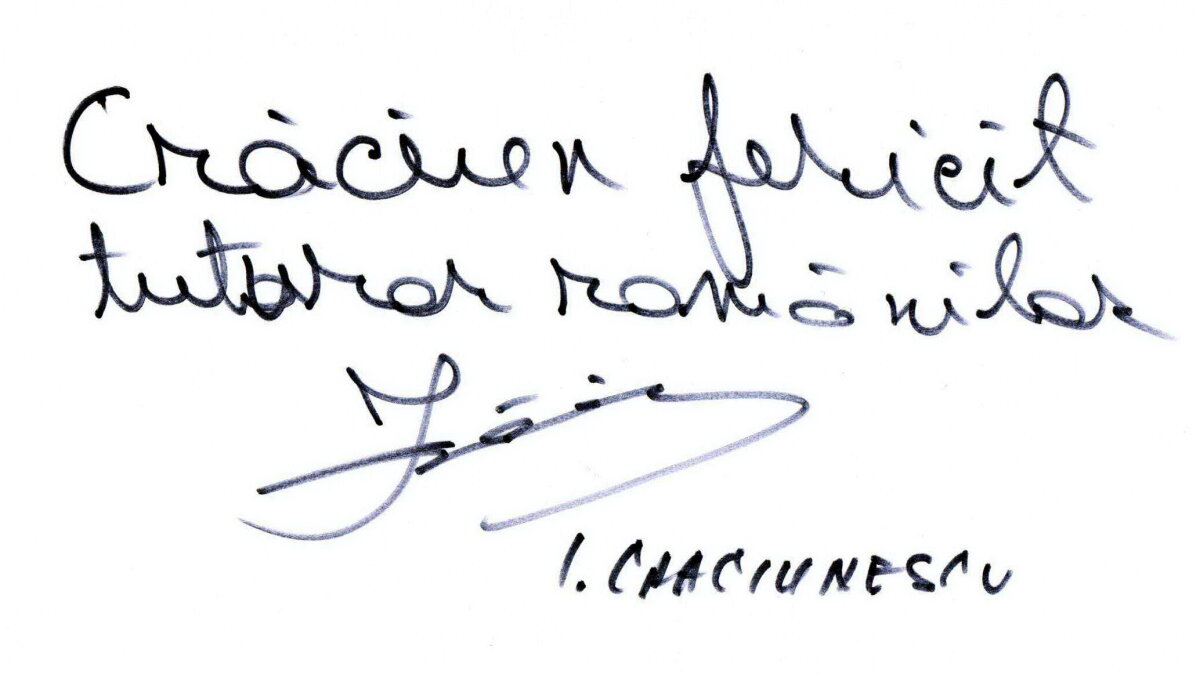 Crăciun fericit
tuturor românilor
I. CRACIUNESCU